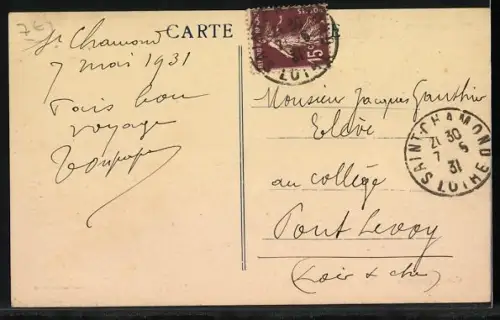 CARTE
St Chamond
7 mai 1931
Fais bon
voyage
Ton papa
15c
LOIRE
Monsieur Jacques Gauthier
Elève
au collège
Pont Levoy
(Loir & cher)
SAINT-CHAMOND
21 30
7 - 5
31
LOIRE